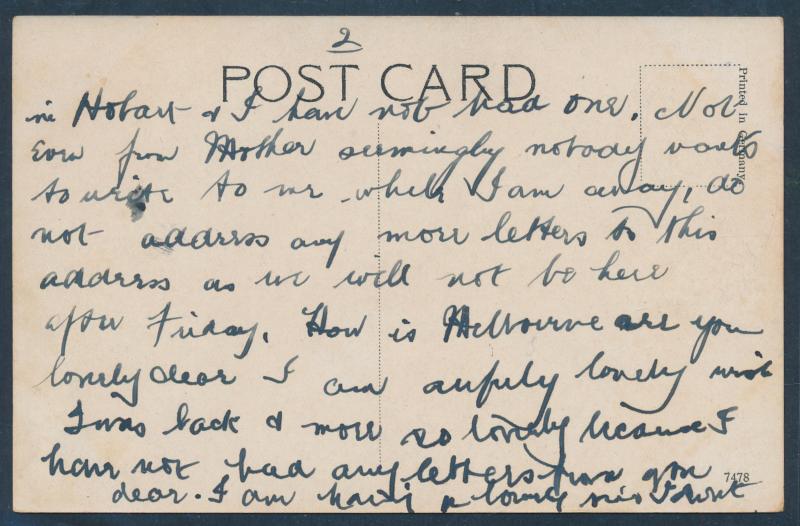 2
POST CARD
Printed in Germany
in Hobart & I have not had one. Not
Even from Mother seemingly nobody wants
to write to me while I am away, do
not address any more letters to this
address as we will not be here
after Friday. How is Melbourne are you
lonely dear I am awfully lonely wish
I was back & more so lonely because I
have not had any letters from you
7478
dear. I am having a lovely